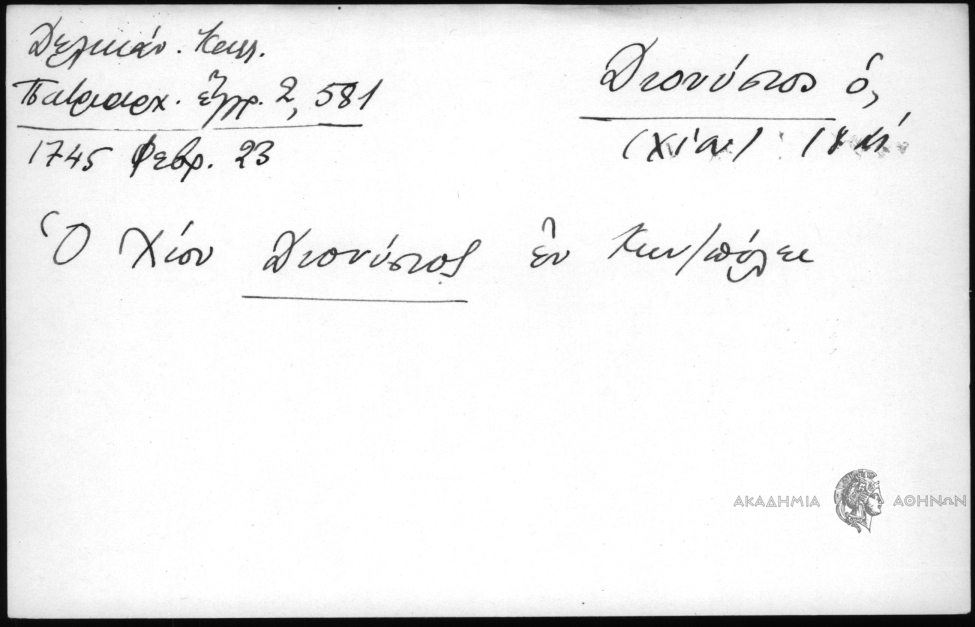 Δελικάν. Καλλ.
Πατριαρχ. ἔγγρ. 2, 581
1745 Φεβρ. 23
Διονύσιος ὁ,
(Χίου)
Ὁ Χίου Διονύσιος ἐν Κων/πόλει
ΑΚΑΔΗΜΙΑ ΑΘΗΝΩΝ